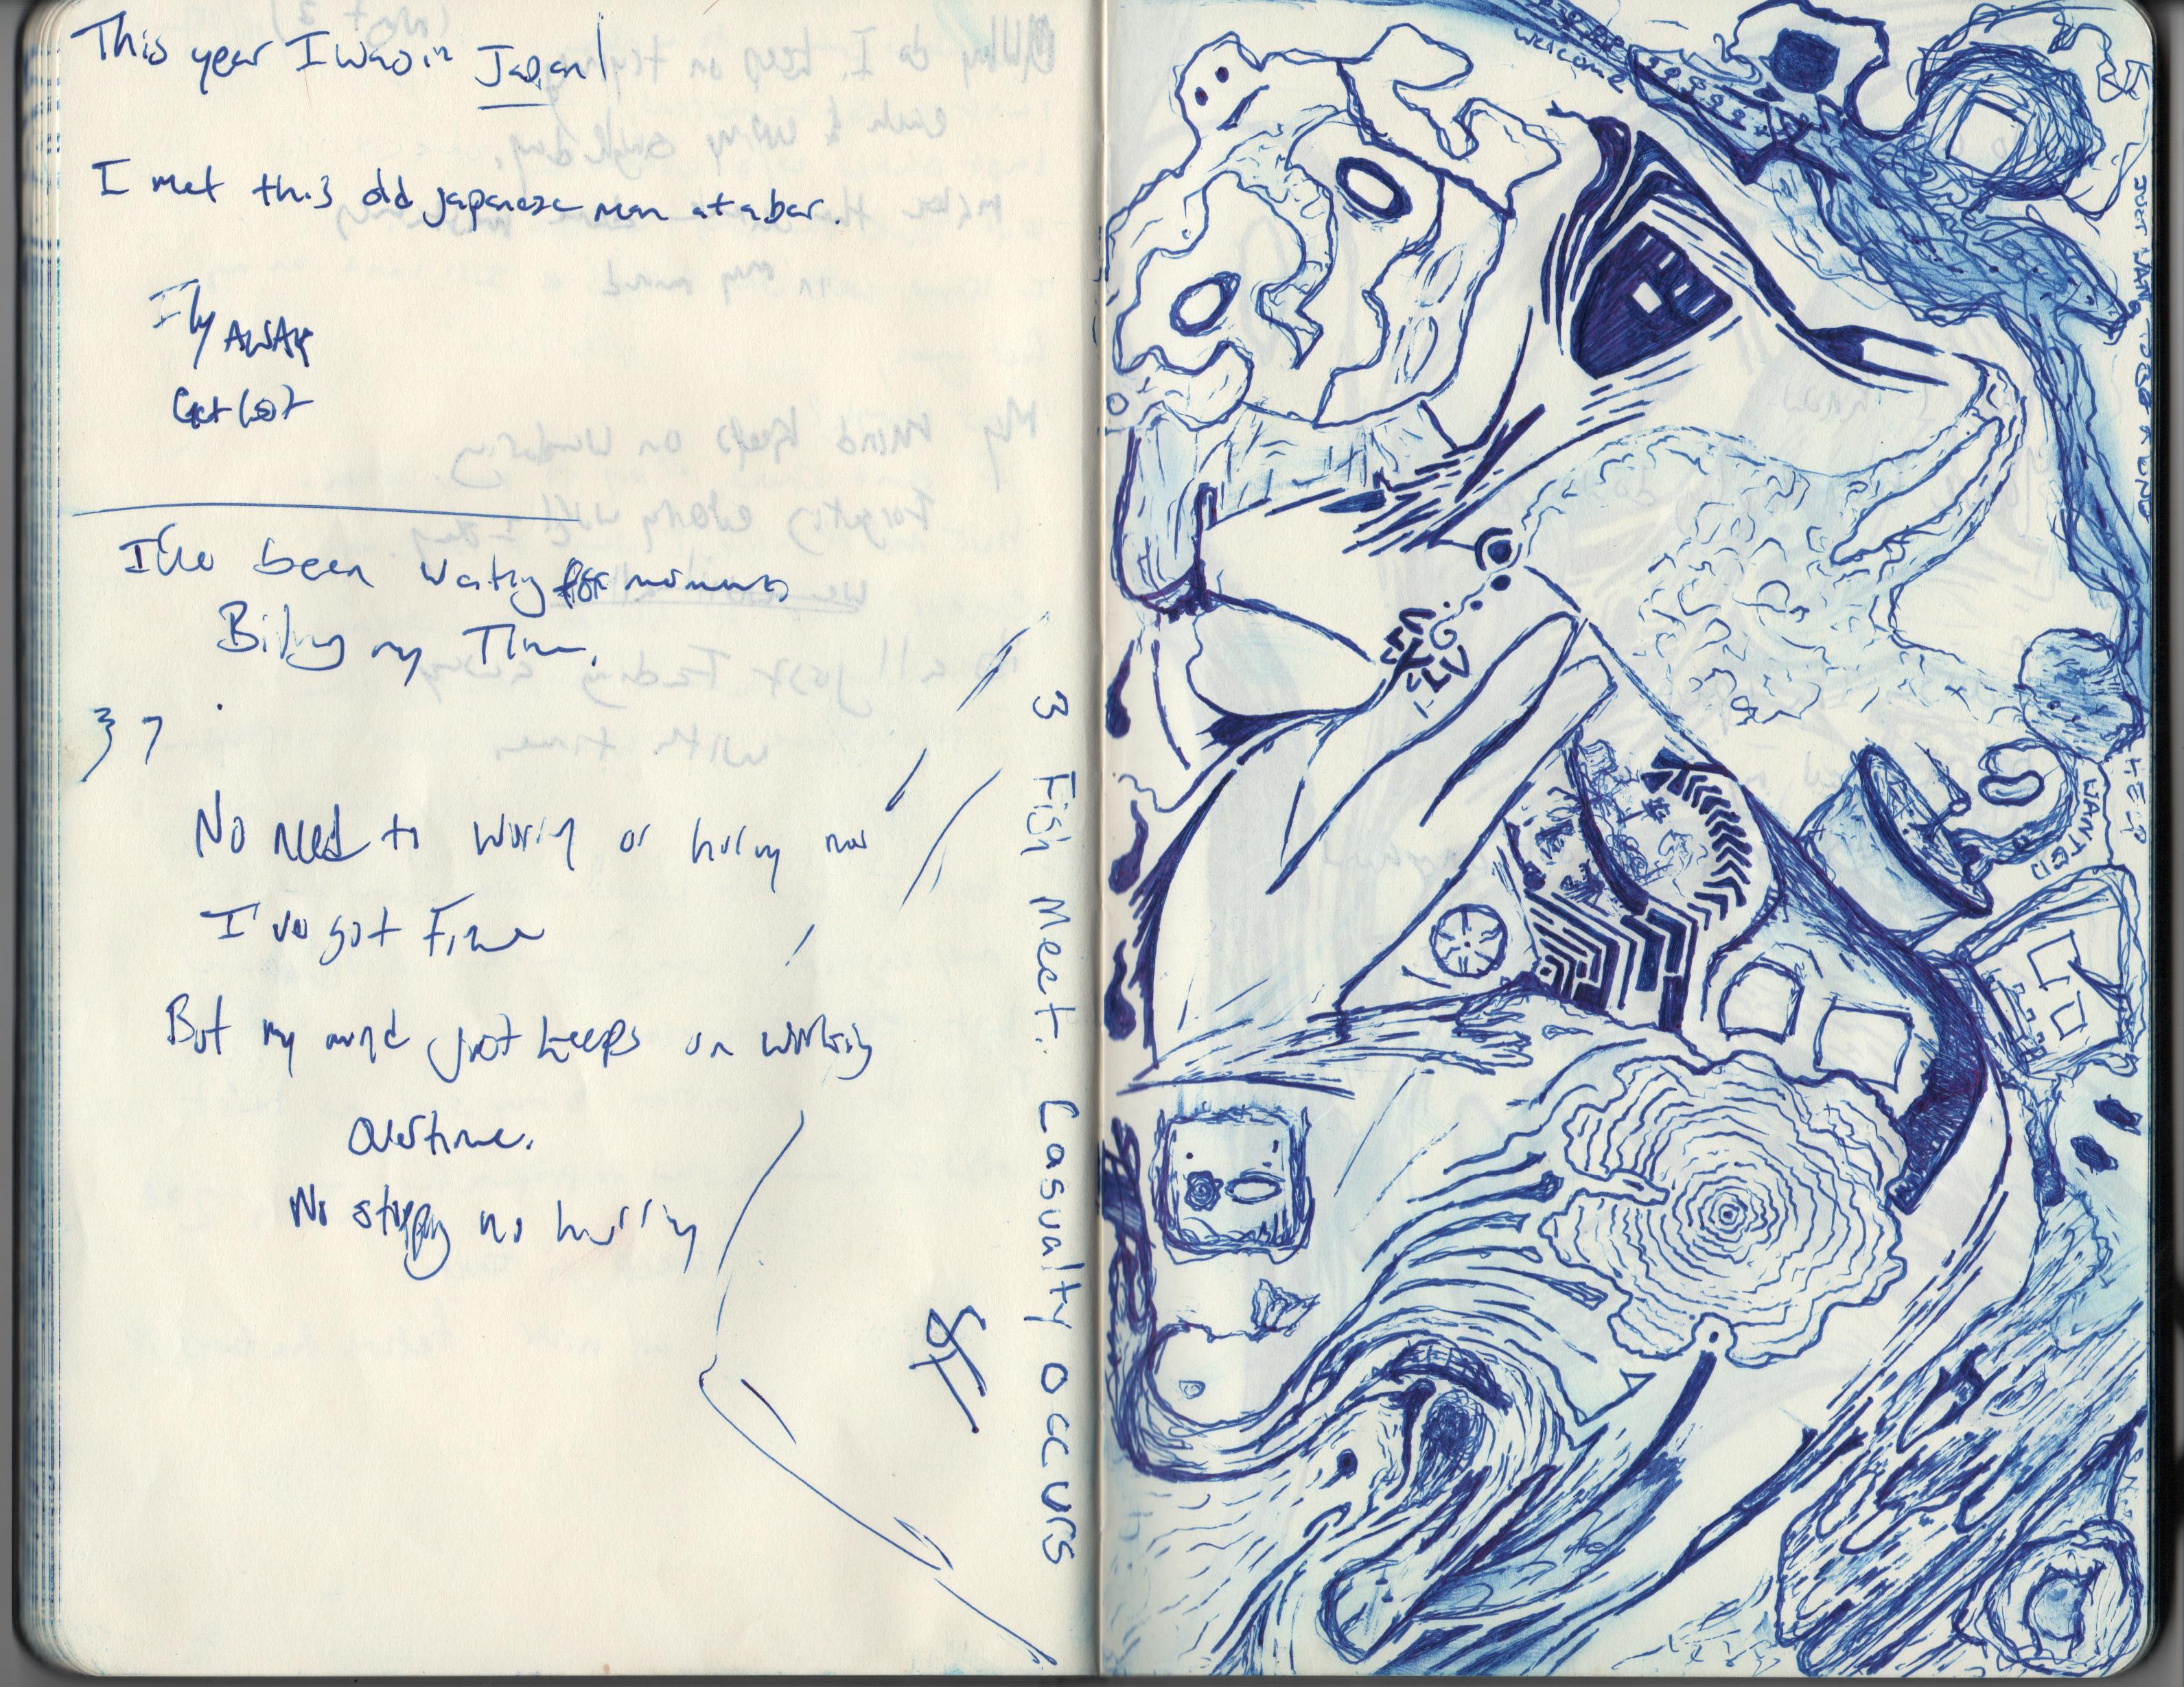 This year I was in Japan!
I met this old japanese man at a bar.
Fly AWAY
Get lost
I've been waiting for moments
Biding my Time.
37
No need to worry or hurry now
I've got Time
But my mind just keeps on working
overtime.
No stopping no hurrying
3 Fish Meet. Casualty occurs
welcome
JUST HANG
HELP
WANTED